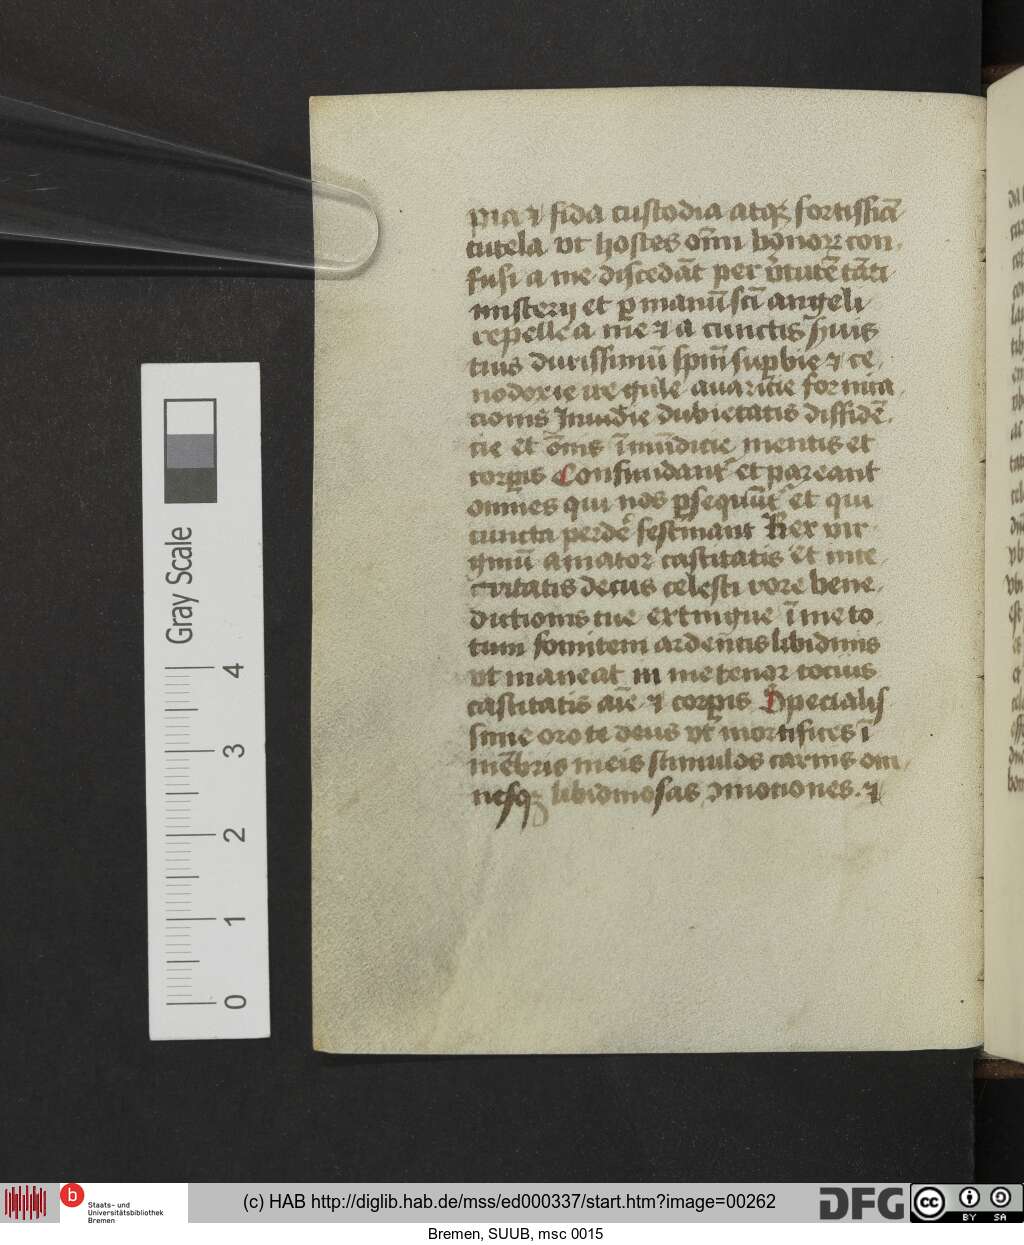 pia ⁊ fida custodia atqꝫ fortissiā
tutela vt hostes om̄i bonoꝝ con
fusi a me discedāt per v̄tutē tāti
misterij et ꝑ manū sc̄i angeli
repelle a me ⁊ a cunctis huis
tuis durissimū sp̄m suꝑbie ⁊ ce
nodoxie ire gule auaricie fornica
cionis Inuidie dubietatis diffidē
tie et om̄is īmūdicie mentis et
corꝑis Confundant᷑ et pareant
omnes qui nos ꝑsequūt᷑ et qui
cuncta perdē festinant Rex vir
ginū amator castitatis et inte
gritatis decus celesti rore bene
dictionis tue extingue ī me to
tum fomitem ardentis libidinis
vt maneat in me tenor tocius
castitatis aīe ⁊ corꝑis Specialis
sime oro te deus vt mortifices ī
mēbris meis stimulos carnis om
nesqꝫ libidinosas ꝯmotiones. ⁊
Gray Scale
4
3
2
1
0
b
Staats- und
Universitätsbibliothek
Bremen
(c) HAB http://diglib.hab.de/mss/ed000337/start.htm?image=00262
DFG
cc
BY SA
Bremen, SUUB, msc 0015